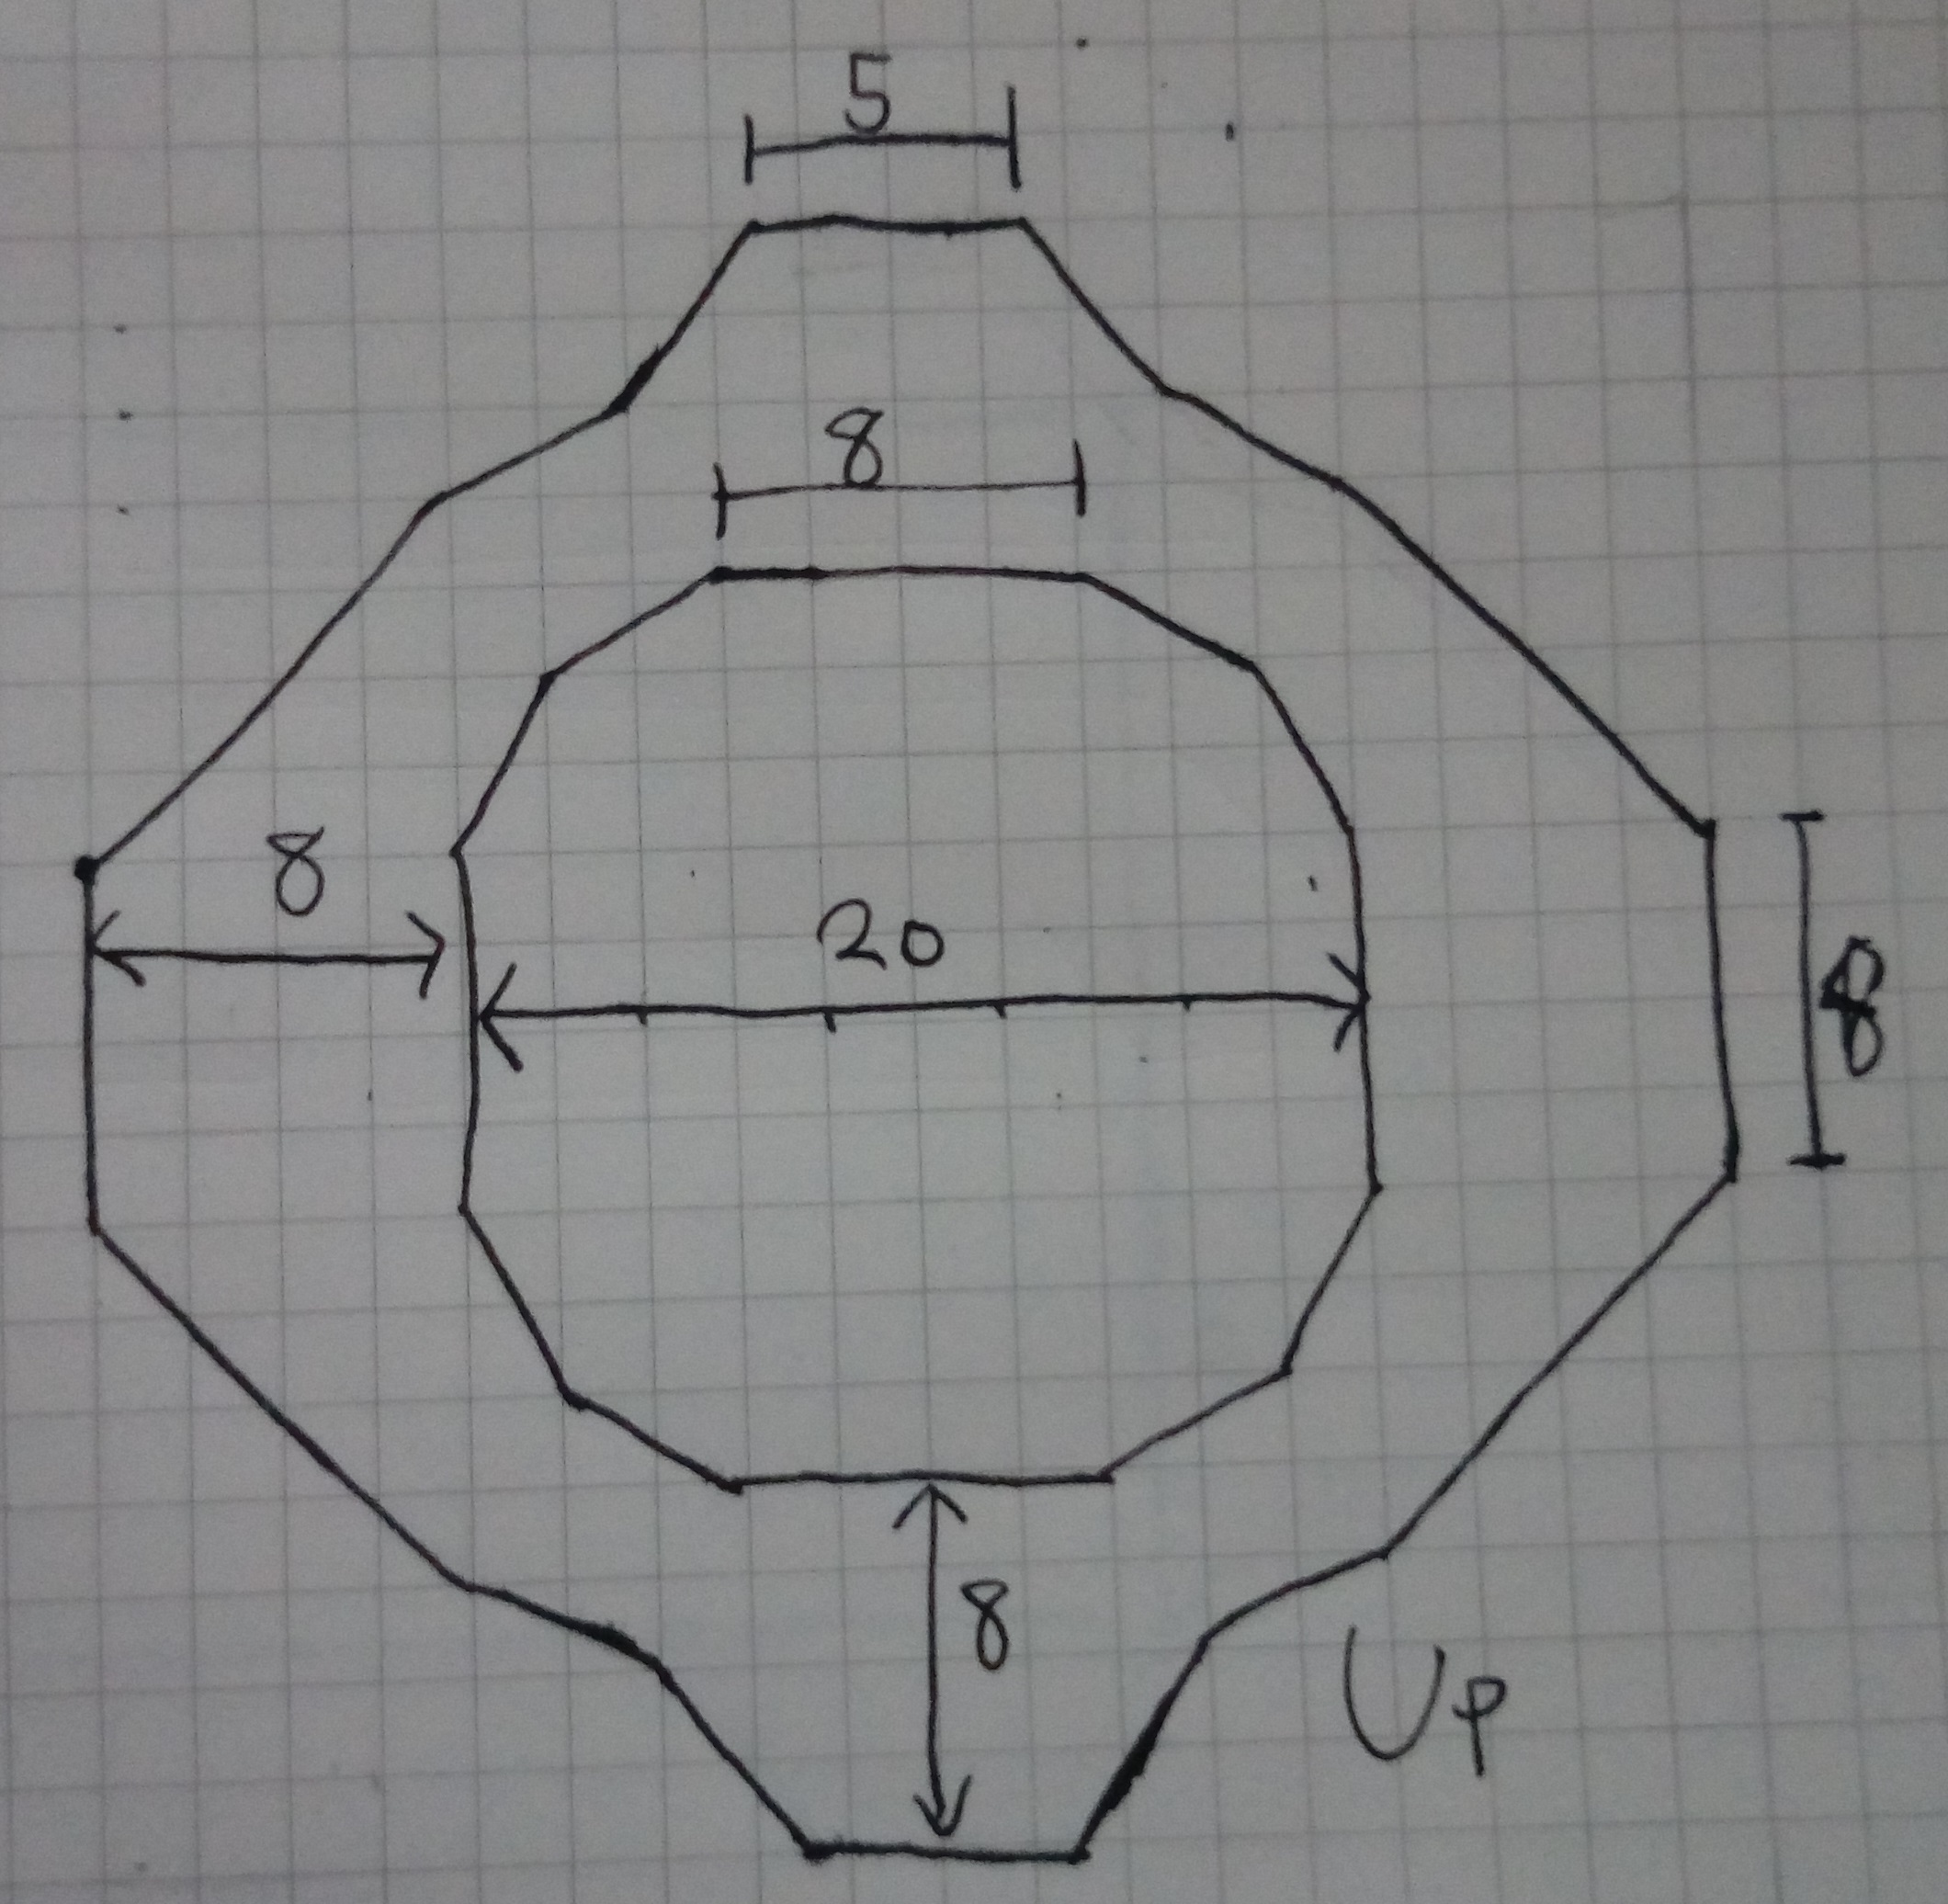 5
8
8
20
8
8
Up